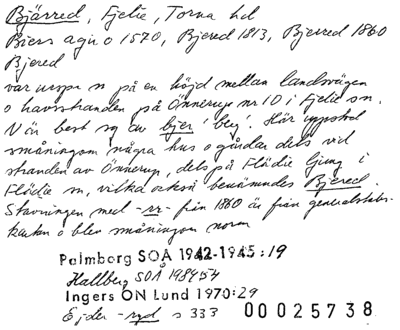 Bjärred, Fjelie, Torna hd
Biers agri o 1570, Bjered 1813, Bjerred 1860
Bjered
var urspr n på en höjd mellan landsvägen
o havsstranden på Önnerup nr 10 i Fjelie sn.
N är best sg av bjer 'berg'. Här uppstod
småningom några hus o gårdar dels vid
stranden av Önnerup, dels på Flädie ljung i
Flädie sn, vilka också benämndes Bjered.
Stavningen med -rr- från 1860 är från generalstabs-
kartan o blev småningom norm
Palmborg SOÅ 1942-1945:19
Hallberg SOÅ 1984
Ingers ON Lund 1970:29
Ejder -ryd s 333
00025738